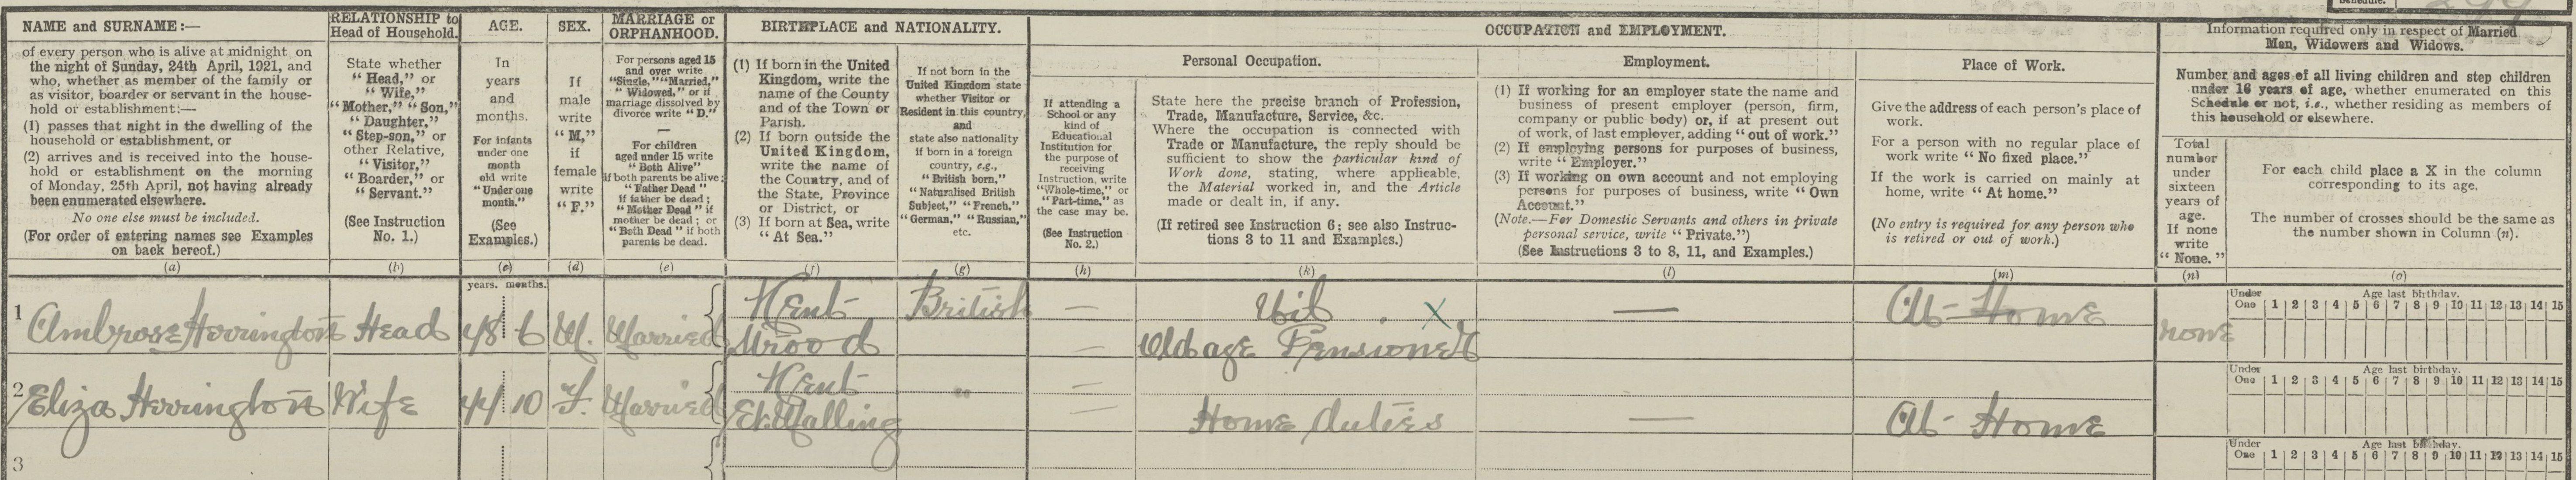 Schedule.
NAME and SURNAME:—
of every person who is alive at midnight on
the night of Sunday, 24th April, 1921, and
who, whether as member of the family or
as visitor, boarder or servant in the house-
hold or establishment:—
(1) passes that night in the dwelling of the
household or establishment, or
(2) arrives and is received into the house-
hold or establishment on the morning
of Monday, 25th April, not having already
been enumerated elsewhere.
No one else must be included.
(For order of entering names see Examples
on back hereof.)
(a)
RELATIONSHIP to
Head of Household.
State whether
"Head," or
"Wife,"
"Mother," "Son,"
"Daughter,"
"Step-son," or
other Relative,
"Visitor,"
"Boarder," or
"Servant."
(See Instruction
No. 1.)
(b)
AGE.
In
years
and
months.
For infants
under one
month
old write
"Under one
month."
(See
Examples.)
(c)
SEX.
If
male
write
"M,"
if
female
write
"F."
(d)
MARRIAGE or
ORPHANHOOD.
For persons aged 15
and over write
"Single," "Married,"
"Widowed," or if
marriage dissolved by
divorce write "D."
—
For children
aged under 15 write
"Both Alive"
if both parents be alive;
"Father Dead"
if father be dead;
"Mother Dead" if
mother be dead; or
"Both Dead" if both
parents be dead.
(e)
BIRTHPLACE and NATIONALITY.
(1) If born in the United
Kingdom, write the
name of the County
and of the Town or
Parish.
(2) If born outside the
United Kingdom,
write the name of
the Country, and of
the State, Province
or District, or
(3) If born at Sea, write
"At Sea."
(f)
If not born in the
United Kingdom state
whether Visitor or
Resident in this country,
and
state also nationality
if born in a foreign
country, e.g.,
"British born,"
"Naturalised British
Subject," "French,"
"German," "Russian,"
etc.
(g)
OCCUPATION and EMPLOYMENT.
If attending a
School or any
kind of
Educational
Institution for
the purpose of
receiving
Instruction, write
"Whole-time," or
"Part-time," as
the case may be.
(See Instruction
No. 2.)
(h)
Personal Occupation.
State here the precise branch of Profession,
Trade, Manufacture, Service, &c.
Where the occupation is connected with
Trade or Manufacture, the reply should be
sufficient to show the particular kind of
Work done, stating, where applicable,
the Material worked in, and the Article
made or dealt in, if any.
(If retired see Instruction 6; see also Instruc-
tions 3 to 11 and Examples.)
(k)
Employment.
(1) If working for an employer state the name and
business of present employer (person, firm,
company or public body) or, if at present out
of work, of last employer, adding "out of work."
(2) If employing persons for purposes of business,
write "Employer."
(3) If working on own account and not employing
persons for purposes of business, write "Own
Account."
(Note.—For Domestic Servants and others in private
personal service, write "Private.")
(See Instructions 3 to 8, 11, and Examples.)
(l)
Place of Work.
Give the address of each person's place of
work.
For a person with no regular place of
work write "No fixed place."
If the work is carried on mainly at
home, write "At home."
(No entry is required for any person who
is retired or out of work.)
(m)
Information required only in respect of Married
Men, Widowers and Widows.
Number and ages of all living children and step children
under 16 years of age, whether enumerated on this
Schedule or not, i.e., whether residing as members of
this household or elsewhere.
Total
number
under
sixteen
years of
age.
If none
write
"None."
(n)
For each child place a X in the column
corresponding to its age.
The number of crosses should be the same as
the number shown in Column (n).
(o)
years. months.
1 Ambrose Herrington Head 48 6 M. Married Kent Strood British — Nil X
Old age Pensioner — At Home none
Under One Age last birthday. 1 2 3 4 5 6 7 8 9 10 11 12 13 14 15
2 Eliza Herrington Wife 44 10 F. Married Kent Et. Malling " — Home duties — At Home
Under One Age last birthday. 1 2 3 4 5 6 7 8 9 10 11 12 13 14 15
3
Under One Age last birthday. 1 2 3 4 5 6 7 8 9 10 11 12 13 14 15